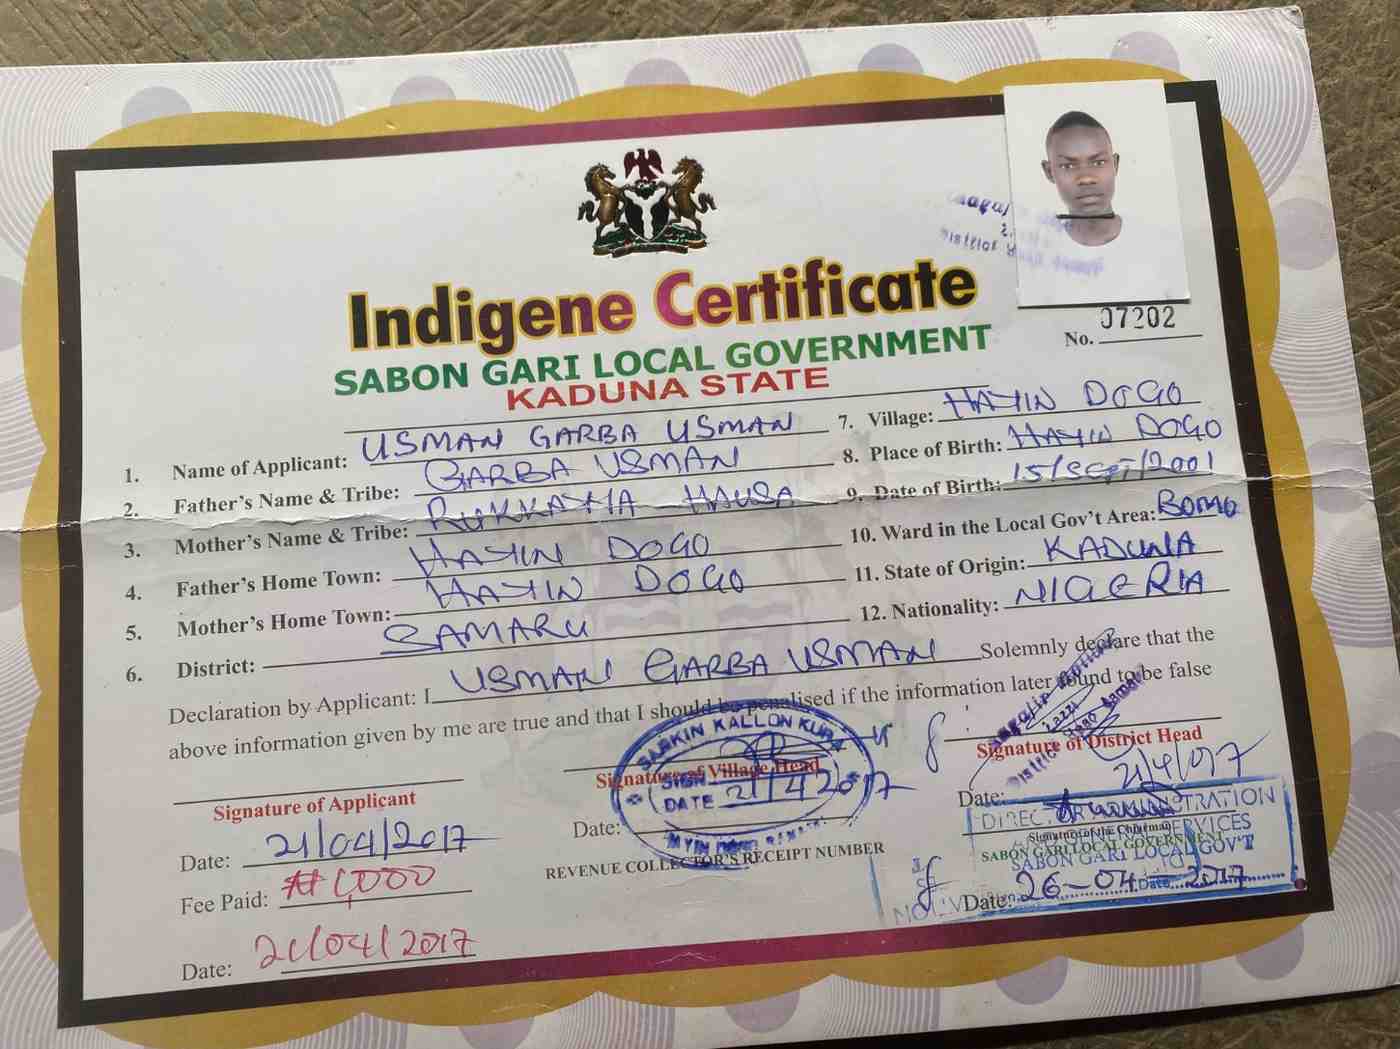 Indigene Certificate
SABON GARI LOCAL GOVERNMENT
KADUNA STATE
No. 07202
1. Name of Applicant: USMAN GARBA USMAN
2. Father's Name & Tribe: GARBA USMAN
3. Mother's Name & Tribe: RUKKAYYA HAUSA
4. Father's Home Town: HAYIN DOGO
5. Mother's Home Town: HAYIN DOGO
6. District: SAMARU
7. Village: HAYIN DOGO
8. Place of Birth: HAYIN DOGO
9. Date of Birth: 15/SEPT/2001
10. Ward in the Local Gov't Area: BOMO
11. State of Origin: KADUNA
12. Nationality: NIGERIA
Declaration by Applicant: I USMAN GARBA USMAN Solemnly declare that the
above information given by me are true and that I should be penalised if the information later found to be false
Signature of Applicant
Date: 21/04/2017
Fee Paid: ₦1,000
Date: 21/04/2017
SARKIN KALLON KURA
Signature of Village Head
SIGN
DATE 21/4/2017
Date:
REVENUE COLLECTOR'S RECEIPT NUMBER
Signature of District Head
21/4/017
Date:
DIRECTOR ADMINISTRATION
Signature of the Chairman
SERVICES
SABON GARI LOCAL GOVERNMENT
SABON GARI LOCAL GOV'T
Date: 26-04-2017